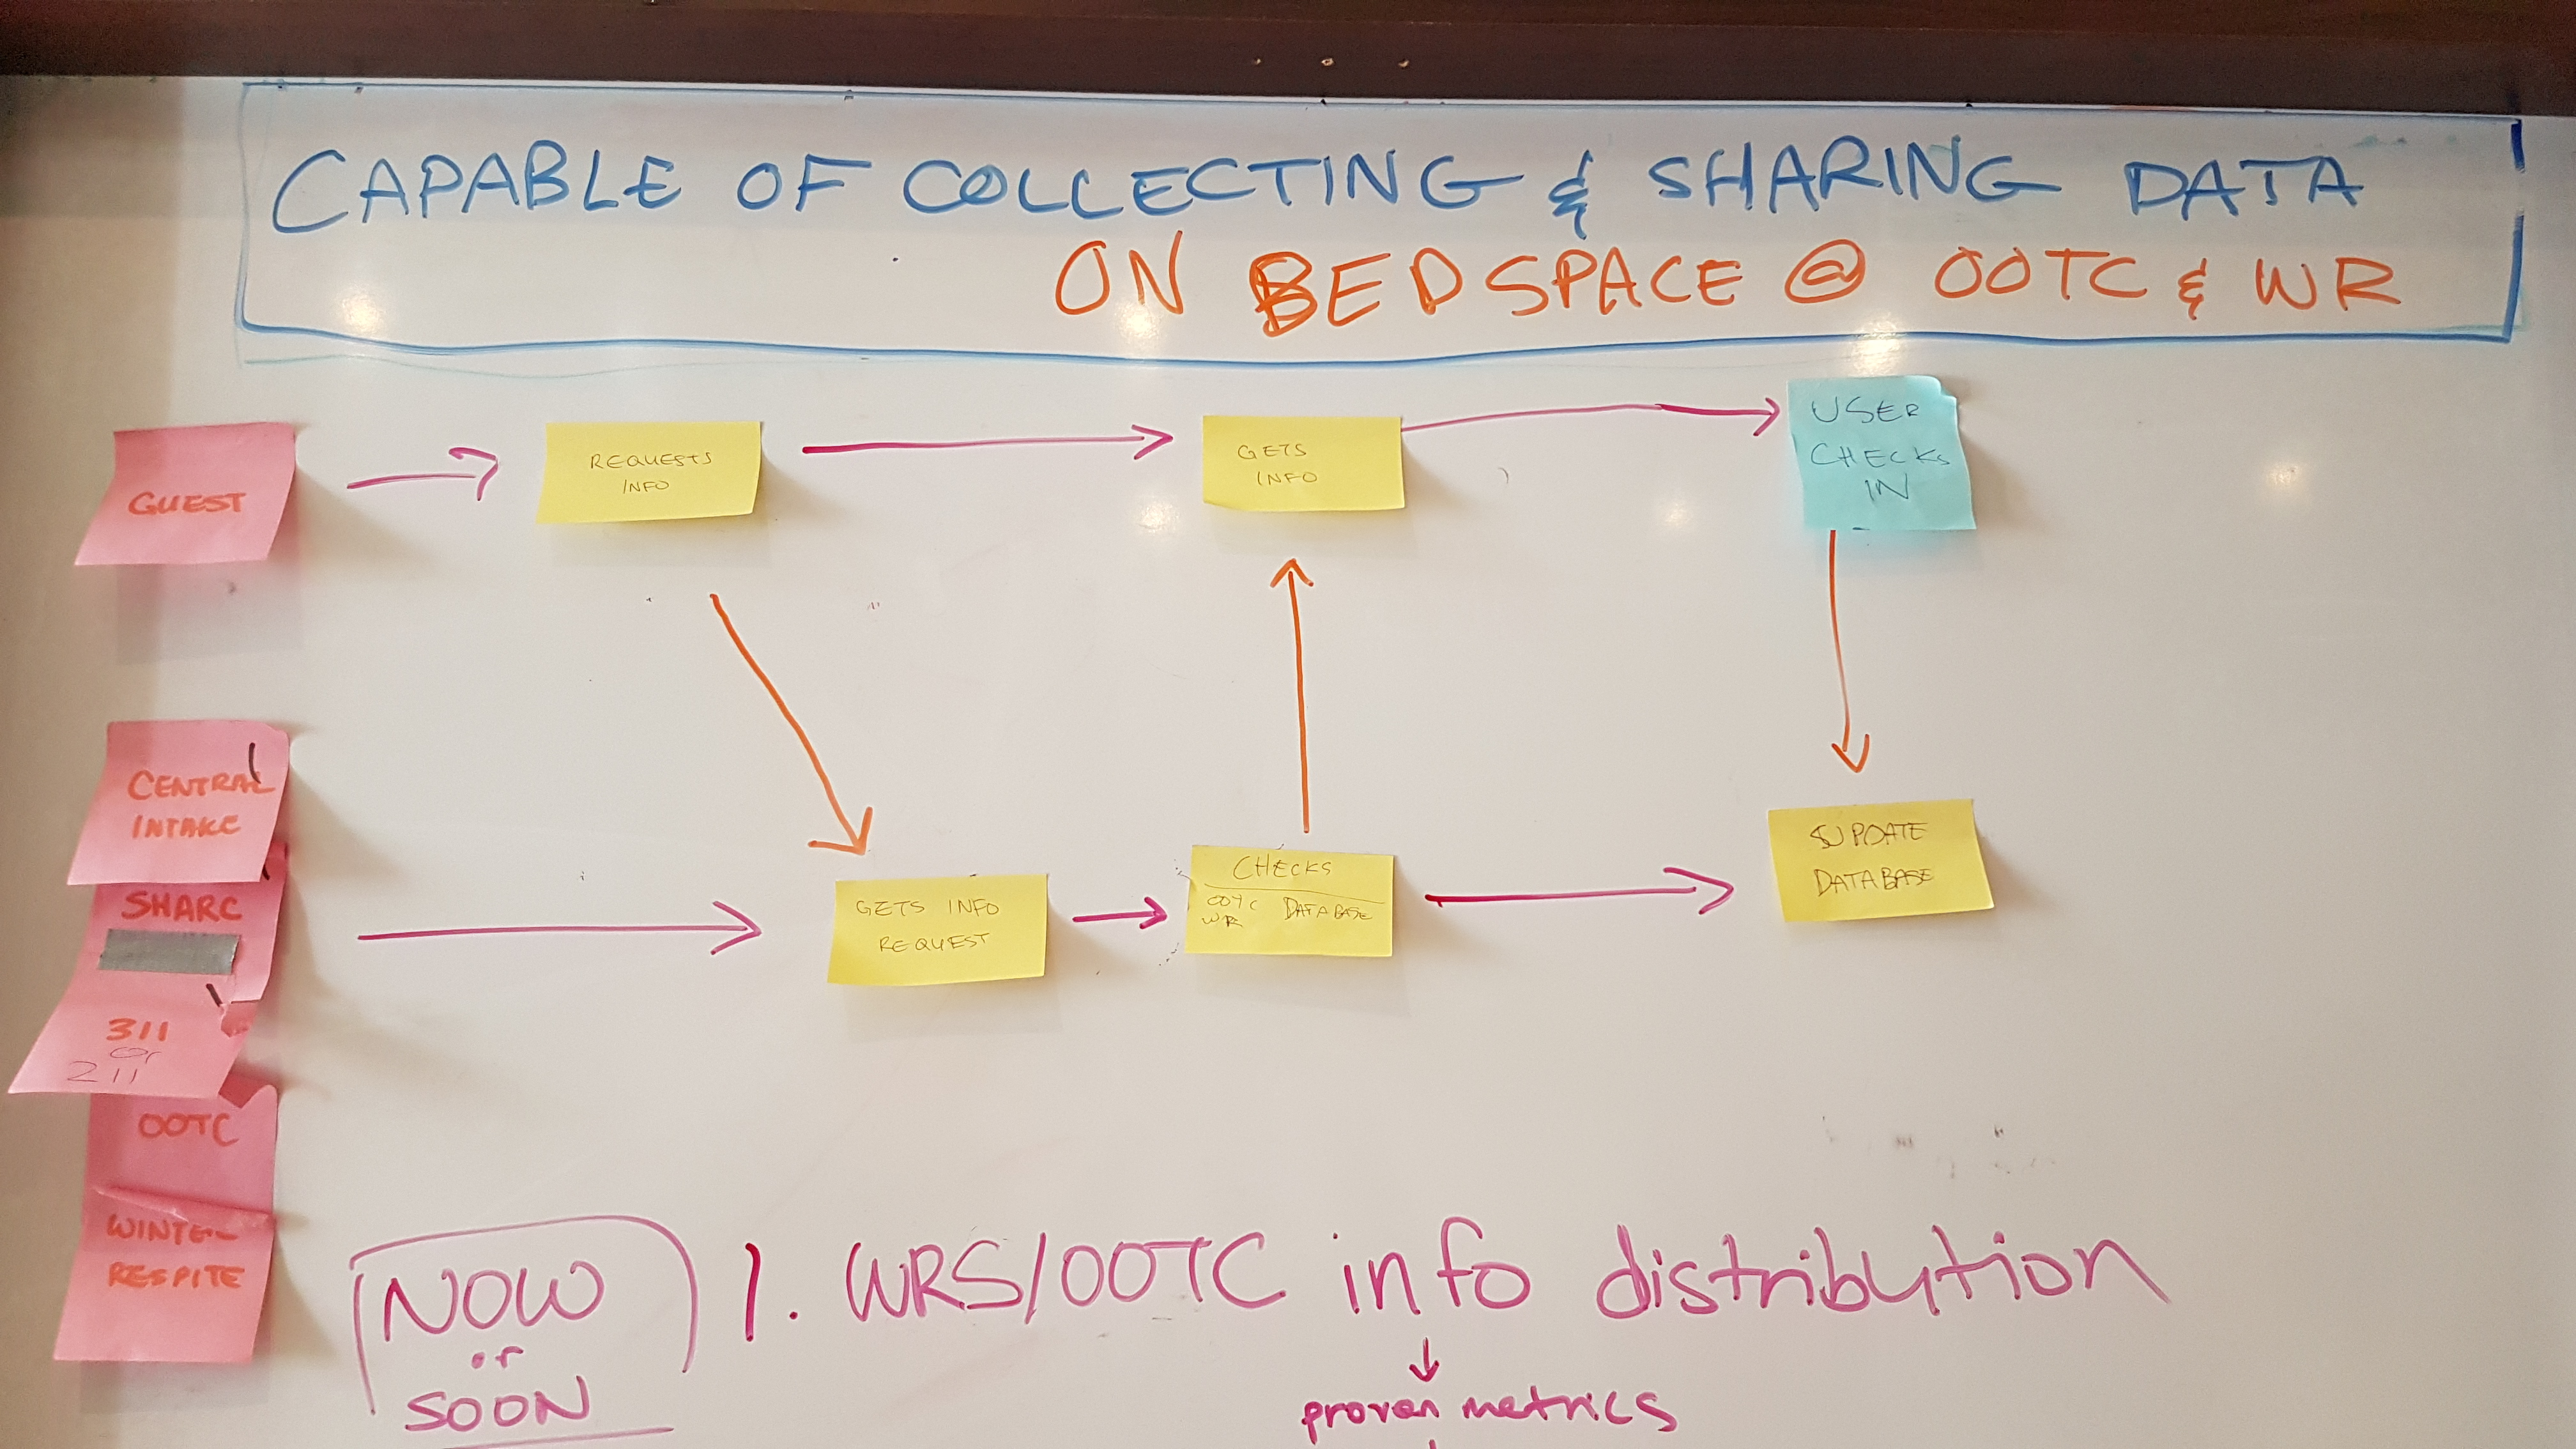 CAPABLE OF COLLECTING & SHARING DATA
ON BEDSPACE @ OOTC & WR
GUEST
REQUESTS
INFO
GETS
INFO
USER
CHECKS
IN
CENTRAL
INTAKE
SHARC
311
or
211
OOTC
WINTER
RESPITE
GETS INFO
REQUEST
CHECKS
OOTC DATABASE
WR
UPDATE
DATABASE
NOW
or
SOON
1. WRS/OOTC info distribution
proven metrics